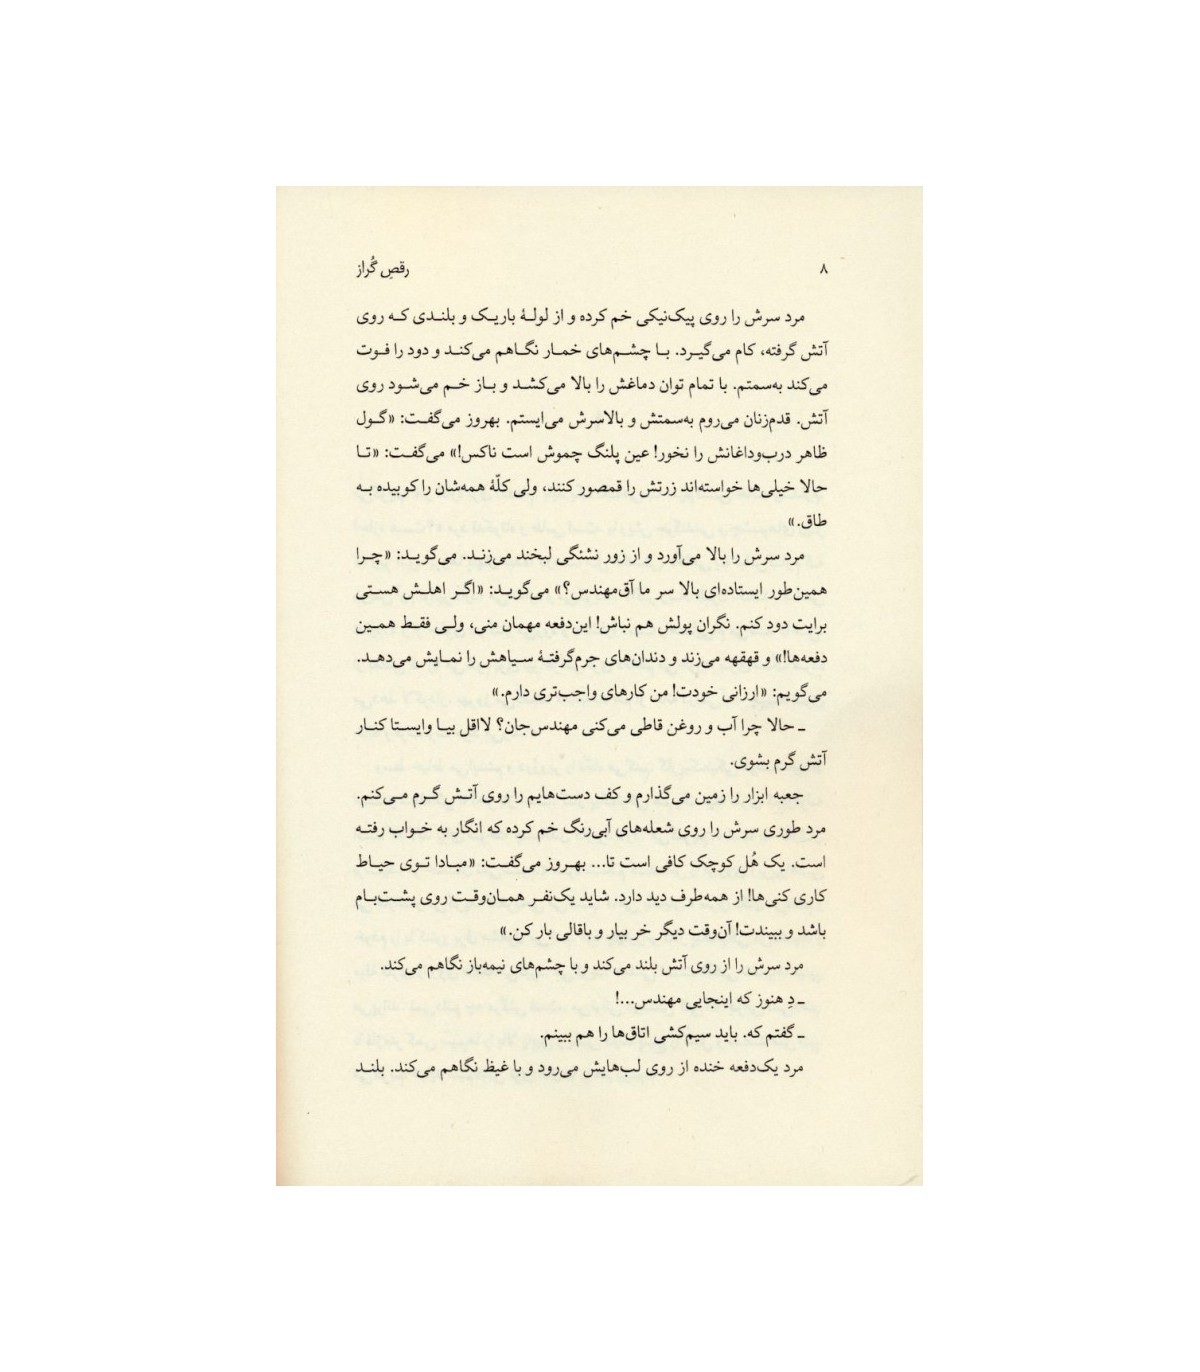 ۸
رقصِ گُراز
مرد سرش را روی پیک‌نیکی خم کرده و از لولهٔ باریک و بلندی که روی
آتش گرفته، کام می‌گیرد. با چشم‌های خمار نگاهم می‌کند و دود را فوت
می‌کند به‌سمتم. با تمام توان دماغش را بالا می‌کشد و باز خم می‌شود روی
آتش. قدم‌زنان می‌روم به‌سمتش و بالاسرش می‌ایستم. بهروز می‌گفت: «گول
ظاهر درب‌وداغانش را نخور! عین پلنگ چموش است ناکس!» می‌گفت: «تا
حالا خیلی‌ها خواسته‌اند زرتش را قمصور کنند، ولی کلّهٔ همه‌شان را کوبیده به
طاق.»
مرد سرش را بالا می‌آورد و از زور نشئگی لبخند می‌زند. می‌گوید: «چرا
همین‌طور ایستاده‌ای بالا سر ما آق‌مهندس؟» می‌گوید: «اگر اهلش هستی
برایت دود کنم. نگران پولش هم نباش! این‌دفعه مهمان منی، ولی فقط همین
دفعه‌ها!» و قهقهه می‌زند و دندان‌های جرم‌گرفتهٔ سیاهش را نمایش می‌دهد.
می‌گویم: «ارزانی خودت! من کارهای واجب‌تری دارم.»
ـ حالا چرا آب و روغن قاطی می‌کنی مهندس‌جان؟ لااقل بیا وایستا کنار
آتش گرم بشوی.
جعبه ابزار را زمین می‌گذارم و کف دست‌هایم را روی آتش گرم می‌کنم.
مرد طوری سرش را روی شعله‌های آبی‌رنگ خم کرده که انگار به خواب رفته
است. یک هُل کوچک کافی است تا... بهروز می‌گفت: «مبادا توی حیاط
کاری کنی‌ها! از همه‌طرف دید دارد. شاید یک‌نفر همان‌وقت روی پشت‌بام
باشد و ببیندت! آن‌وقت دیگر خر بیار و باقالی بار کن.»
مرد سرش را از روی آتش بلند می‌کند و با چشم‌های نیمه‌باز نگاهم می‌کند.
ـ دِ هنوز که اینجایی مهندس...!
ـ گفتم که. باید سیم‌کشی اتاق‌ها را هم ببینم.
مرد یک‌دفعه خنده از روی لب‌هایش می‌رود و با غیظ نگاهم می‌کند. بلند